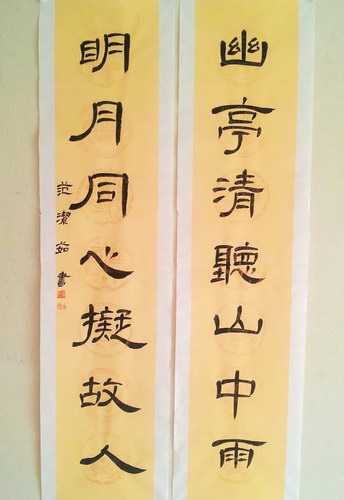 幽亭清聽山中雨
明月同心擬故人
范潔茹書